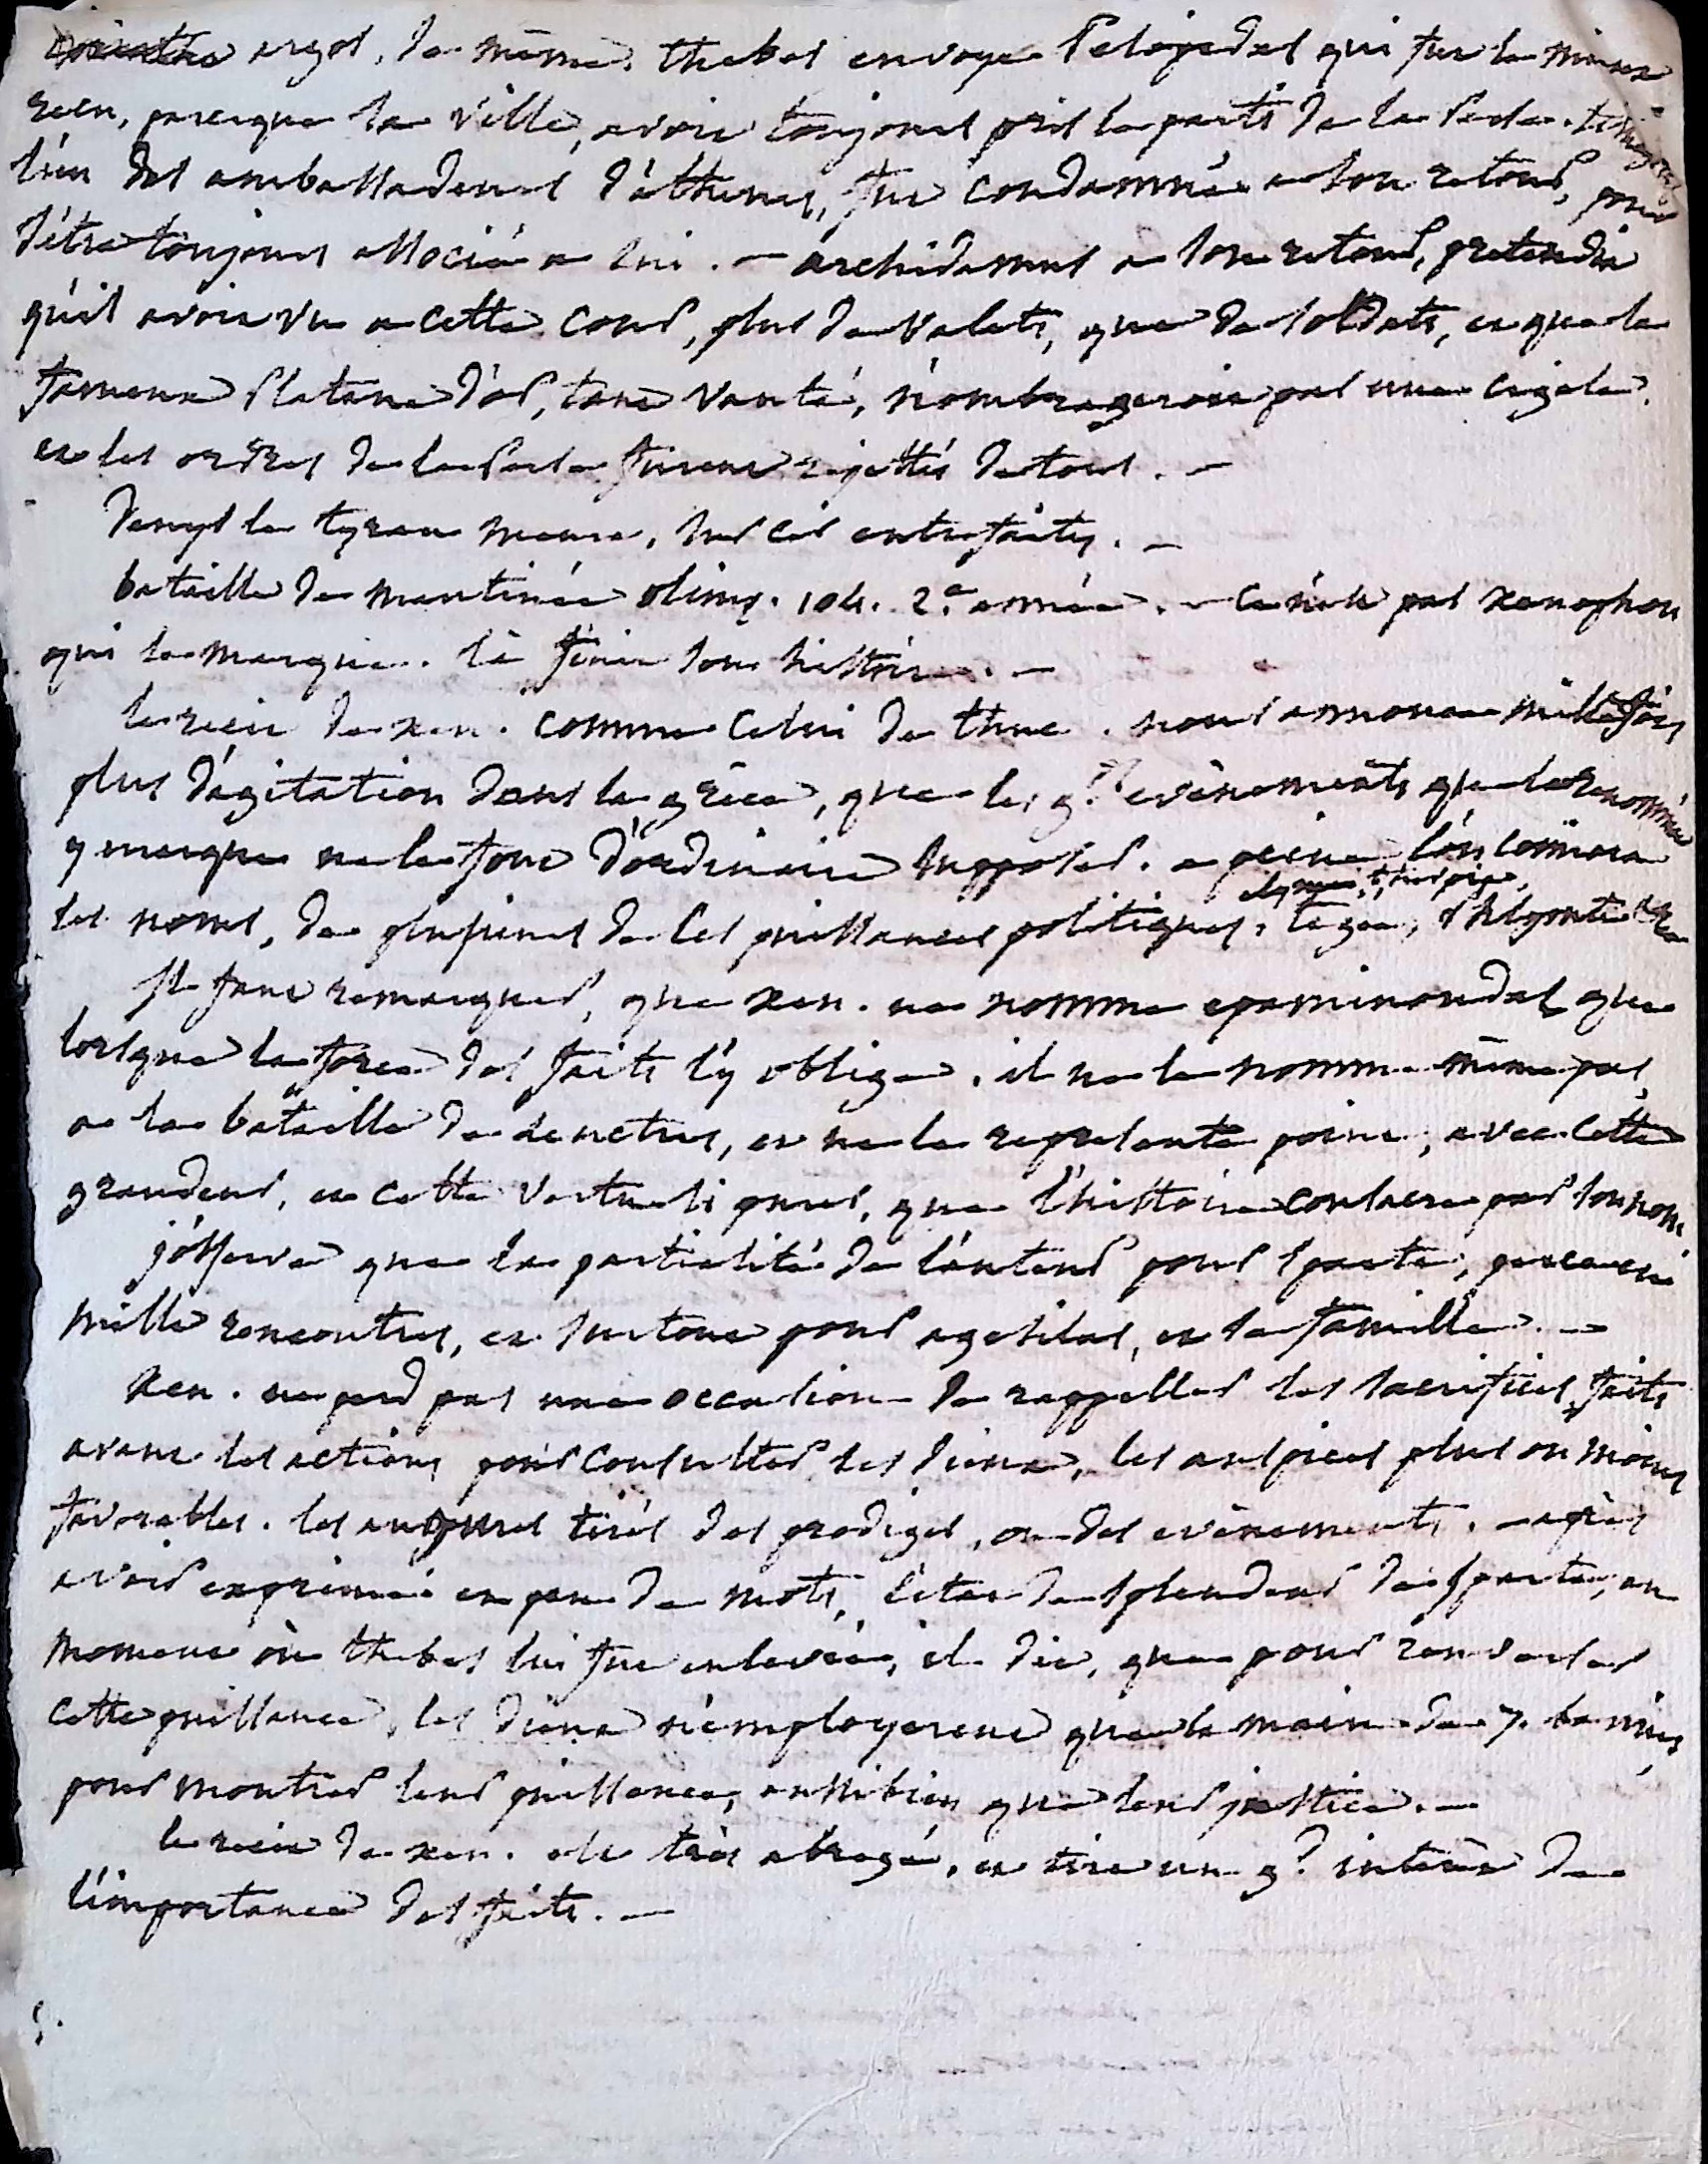 argos, de même. thebes envoye Pelopidas qui fut le mieux
recu, parceque sa ville, avoit toujours pris le parti de la Perse. timagoras
l'un des ambassadeurs d'athenes, fut condamné a son retour, pour
s'être toujours associé a lui. — archidamus a son retour, pretendit
qu'il avoit vu a cette cour, plus de valets, que de soldats, et que le
fameux Platane d'or, tant vanté, n'ombrageroit pas une cigale.
et les ordres de la Perse furent rejettés de tous. —
Denys le tyran meurt, sur ces entrefaites. —
bataille de mantinée olimp. 104. 2.e année. — ce n'est pas xenophon
qui la marque. là finit son histoire. —
le recit de xen. comme celui de thuc. nous annonce mille fois
plus d'agitation dans la grèce, que les g.ds evènements que la renommée
y marque ne le font d'ordinaire supposer. a peine l'on connoit
les noms, de plusieurs de ces puissances politiques, tegée, Selymbrie
Il faut remarquer, que xen. ne nomme epaminondas que
lorsque la force des faits l'y oblige. il ne le nomme même pas,
a la bataille de Leuctres, et ne le represente point, avec cette
grandeur, et cette vertu si pure, que l'histoire consacre par son nom.
j'observe que la partialité de l'auteur pour Sparte, perce en
mille rencontres, et surtout pour agesilas, et sa famille. —
Xen. ne perd pas une occasion de rappeller les sacrifices faits
avant les actions pour consulter les dieux, les auspices plus ou moins
favorables. les augures tirés des prodiges, ou des evènements. — après
avoir exprimé en peu de mots, l'etat de splendeur de Sparte, au
moment où thebes lui fut enlevée, il dit, que pour renverser
cette puissance, les dieux n'employerent que la main de 7. bannis,
pour montrer leur puissance, aussi bien que leur justice. —
le recit de xen. est très abregé, et tire un g.d interêt de
l'importance des faits. —